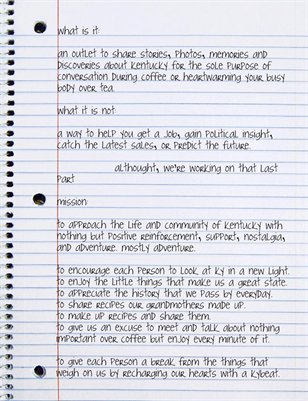 what is it:
an outlet to share stories, photos, memories and
discoveries about kentucky for the sole purpose of
conversation during coffee or heartwarming your busy
body over tea.
what it is not:
a way to help you get a job, gain political insight,
catch the latest sales, or predict the future.
althought, we're working on that last
part
mission
to approach the life and community of kentucky with
nothing but positive reinforcement, support, nostalgia,
and adventure. mostly adventure.
to encourage each person to look at ky in a new light.
to enjoy the little things that make us a great state.
to appreciate the history that we pass by everyday.
to share recipes our grandmothers made up.
to make up recipes and share them.
to give us an excuse to meet and talk about nothing
important over coffee but enjoy every minute of it.
to give each person a break from the things that
weigh on us by recharging our hearts with a kybeat.